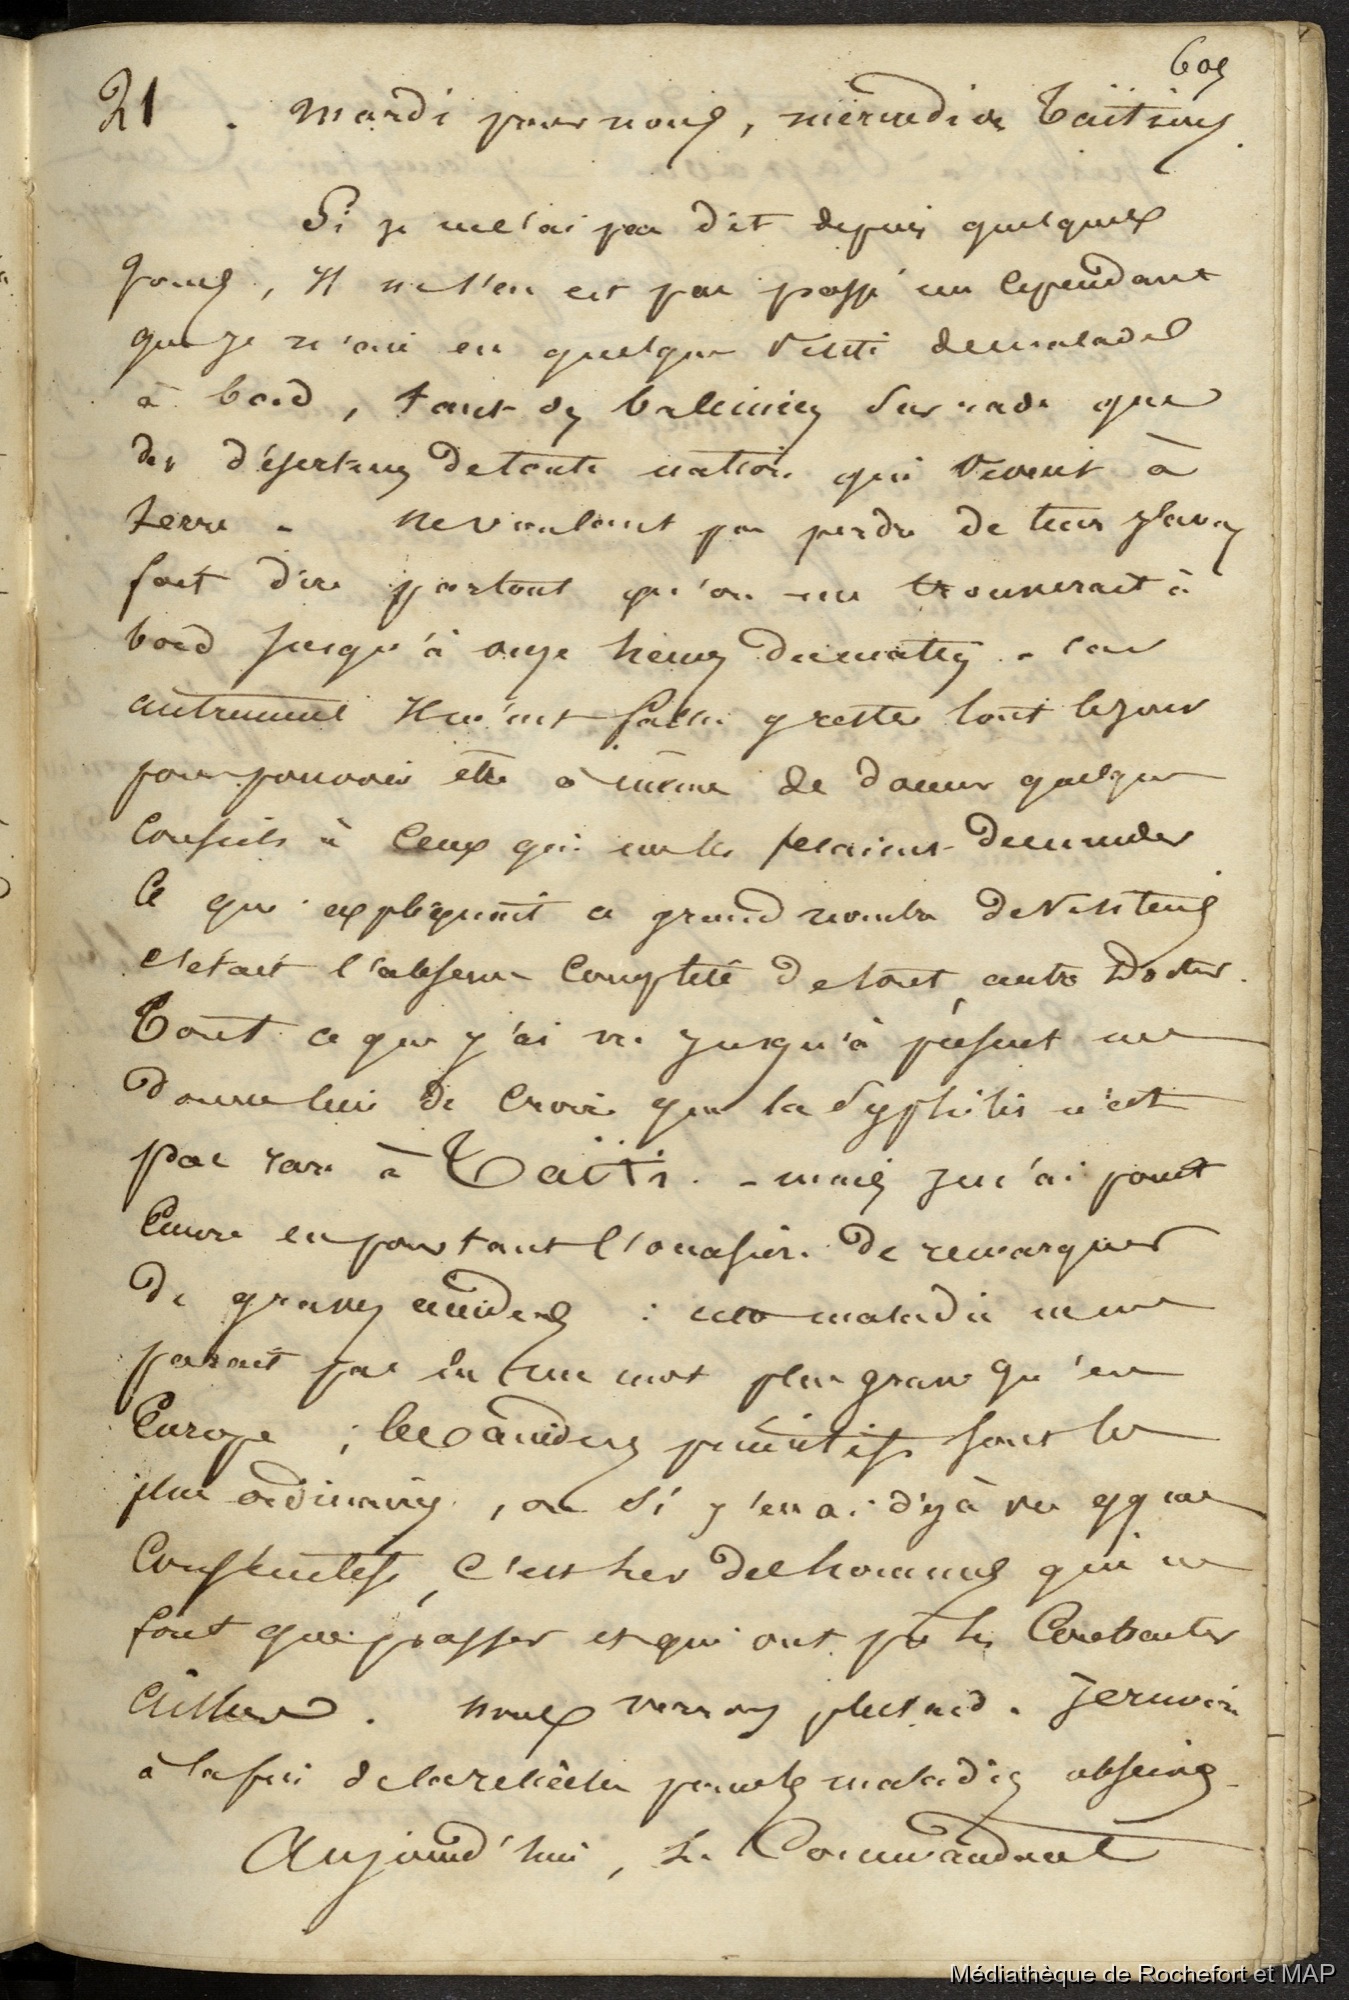 609
21 . mardi pour nous, mercredi aux Taïtiens.
Si je ne l'ai pas dit depuis quelques
jours, Il ne s'en est pas passé un cependant
que je n'aie eu quelque visite de malades
à bord, tant des baleiniers sur rade que
des déserteurs de toute nation qui vivent à
terre - ne voulant pas perdre de tems j'avais
fait dire partout qu'on me trouverait à
bord jusqu'à onze heures du matin - car
autrement Il m'eut fallu y rester tout le jour
pour pouvoir être à même de donner quelques
Conseils à Ceux qui me les feraient demander
Ce qui expliquait ce grand nombre de visiteurs
c'était l'absence Complète de tout autre Docteur.
Tout ce que j'ai vu jusqu'à présent me
donne lieu de Croire que la Syphilis n'est
pas rare à Taïti. - mais je n'ai point
Encore eu pourtant l'occasion de remarquer
de graves accidens : cette maladie ne me
parait pas en un mot plus grave qu'en
Europe ; les accidens primitifs sont les
plus ordinaires, ou si j'en ai déjà vu qq uns
Consécutifs, C'est chez des hommes qui ne
font que passer et qui ont pû les Contracter
Ailleurs. nous verrons plus tard. Je renvoie
à la fin de la relâche pour les maladies observées
Aujourd'hui, le Commandant
Médiathèque de Rochefort et MAP